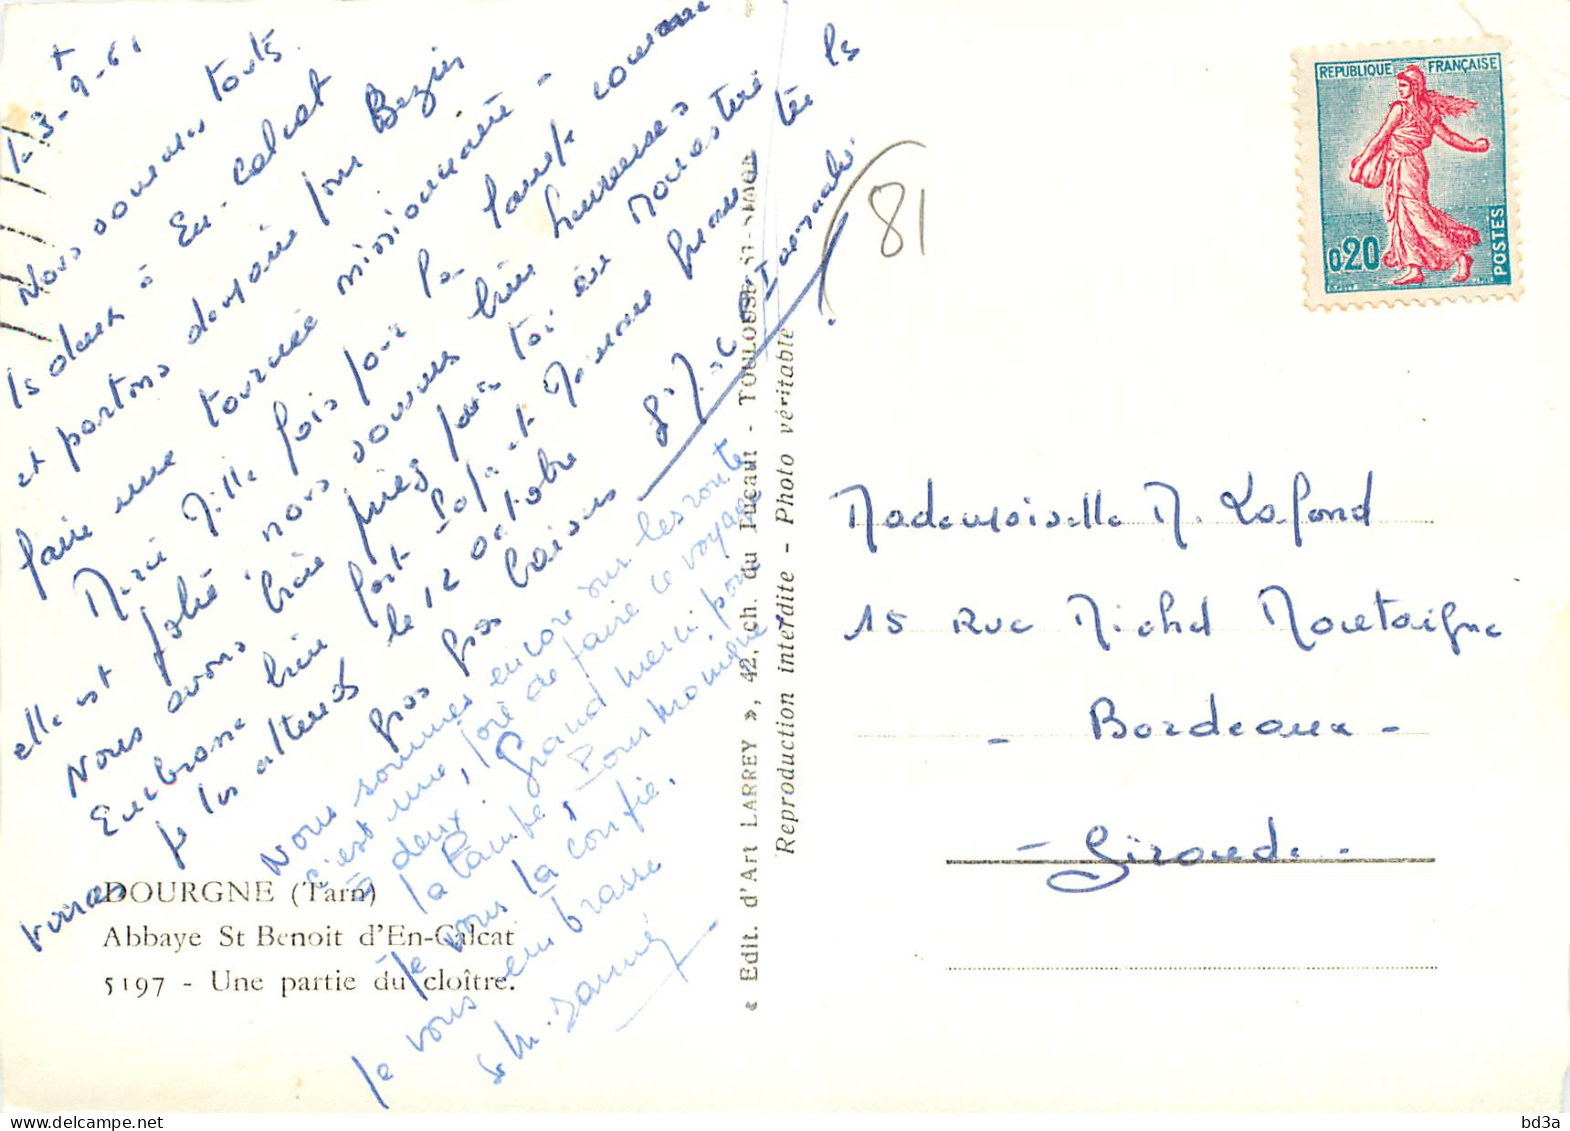 +
le 3-9-61
Nous sommes toutes
les deux à En-Calcat
et partons demain pour Bezier
faire une tournée missionnaire -
Merci Mille fois pour la lampe comme
elle est jolie nous sommes bien heureuses
Nous avons bien priés pour toi au Monastère
Embrasse bien fort Papa et Maman pense tu les
je les attends le 12 octobre
gros gros baisers
Nous sommes encore sur les routes
c'est une joie de faire ce voyage
à deux. Grand merci pour
la lampe,
Je vous la confie.
Je vous embrasse
DOURGNE (Tarn)
Abbaye St Benoit d'En-Calcat
5197 - Une partie du cloître.
« Edit. d'Art LARREY », 42, ch. du Pucaut - TOULOUSE
Reproduction interdite - Photo véritable
81
REPUBLIQUE FRANÇAISE
0,20
POSTES
Mademoiselle M. Lafond
15 Rue Michel Montaigne
- Bordeaux -
- Gironde -
bd3a